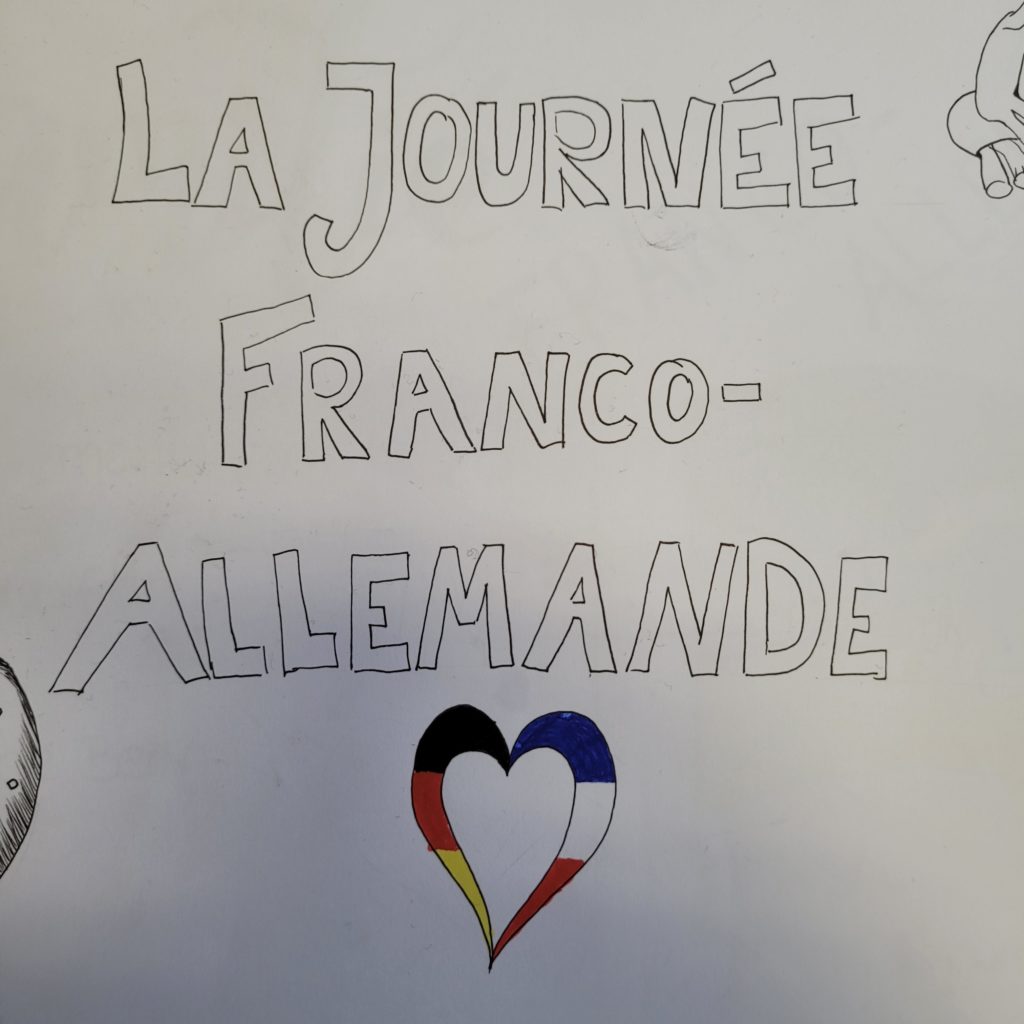 LA JOURNÉE
FRANCO-
ALLEMANDE